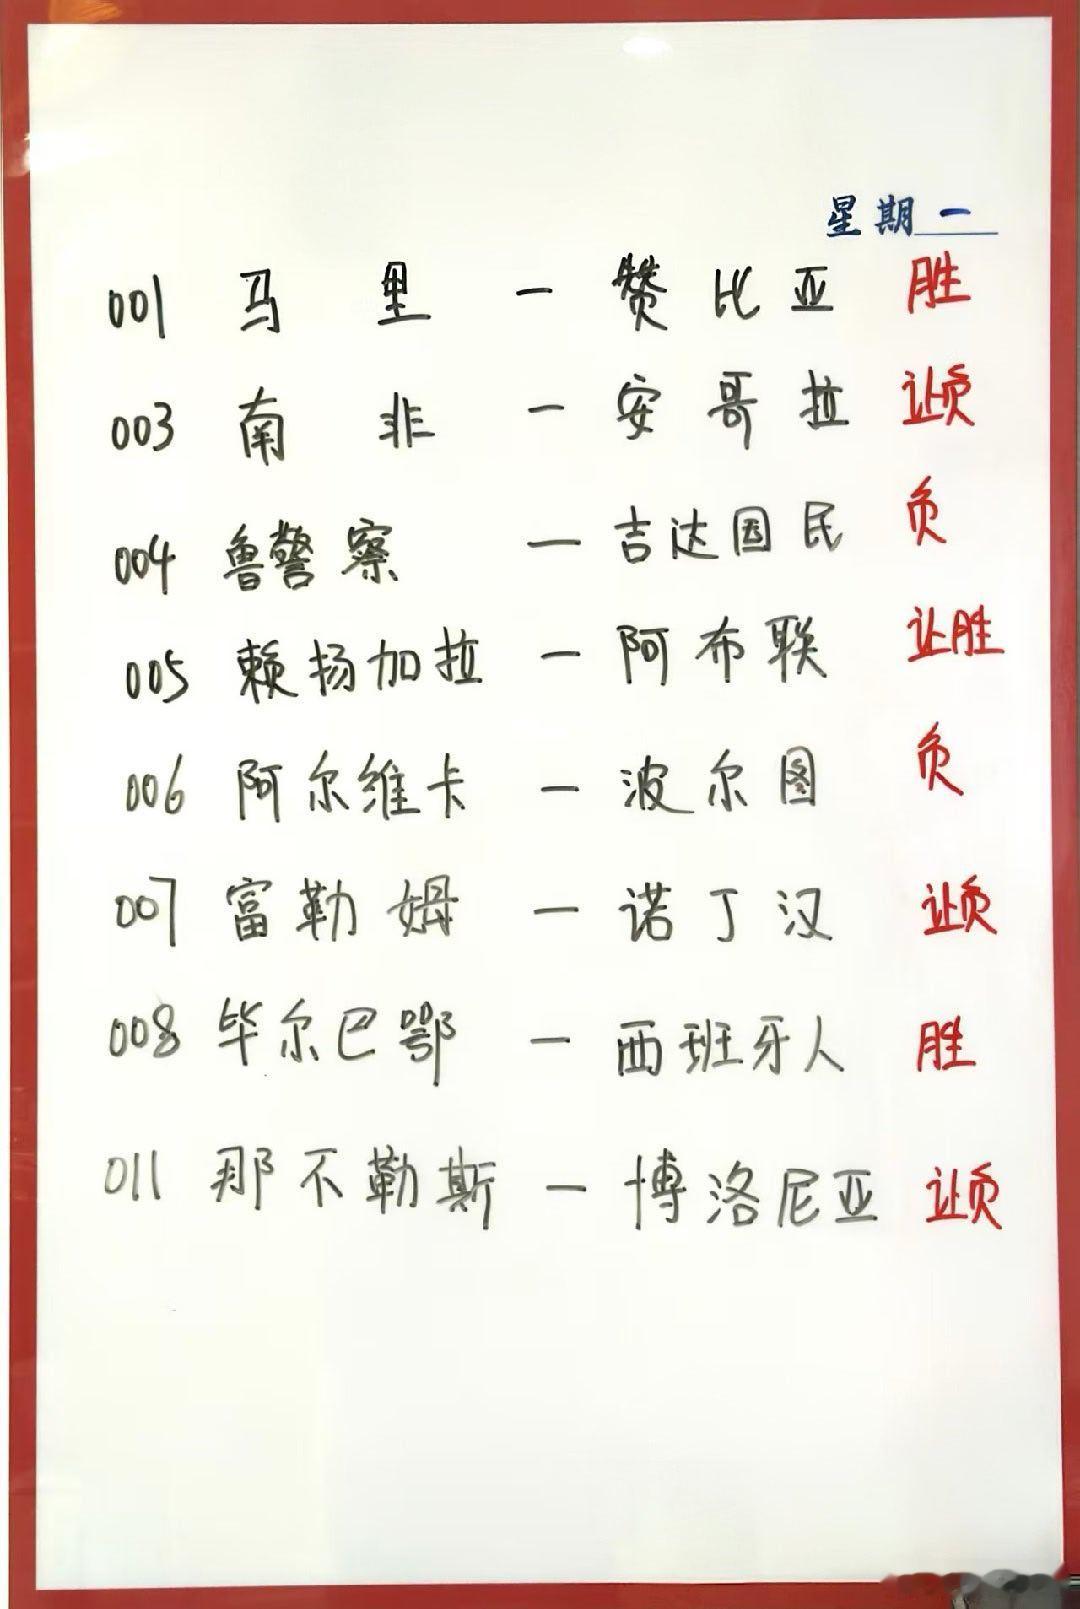 星期一
001 马里 — 赞比亚 胜
003 南非 — 安哥拉 让负
004 鲁警察 — 吉达国民 负
005 赖扬加拉 — 阿布联 让胜
006 阿尔维卡 — 波尔图 负
007 富勒姆 — 诺丁汉 让负
008 毕尔巴鄂 — 西班牙人 胜
011 那不勒斯 — 博洛尼亚 让负